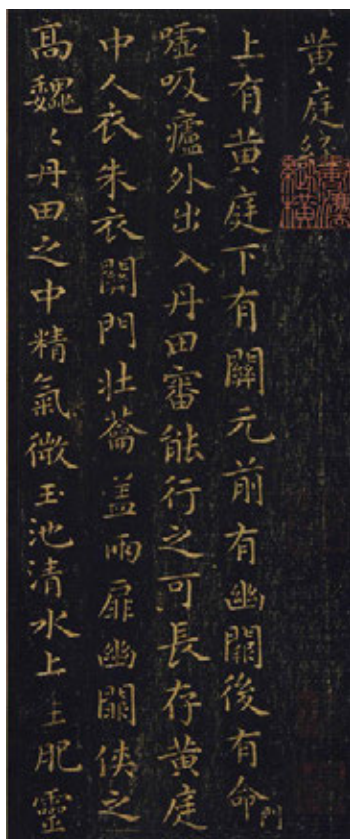 黄庭經
上有黄庭下有關元前有幽闕後有命門
噓吸廬外出入丹田審能行之可長存黄庭
中人衣朱衣關門壯蘥盖兩扉幽闕俠之
高魏〻丹田之中精氣微玉池清水上生肥靈